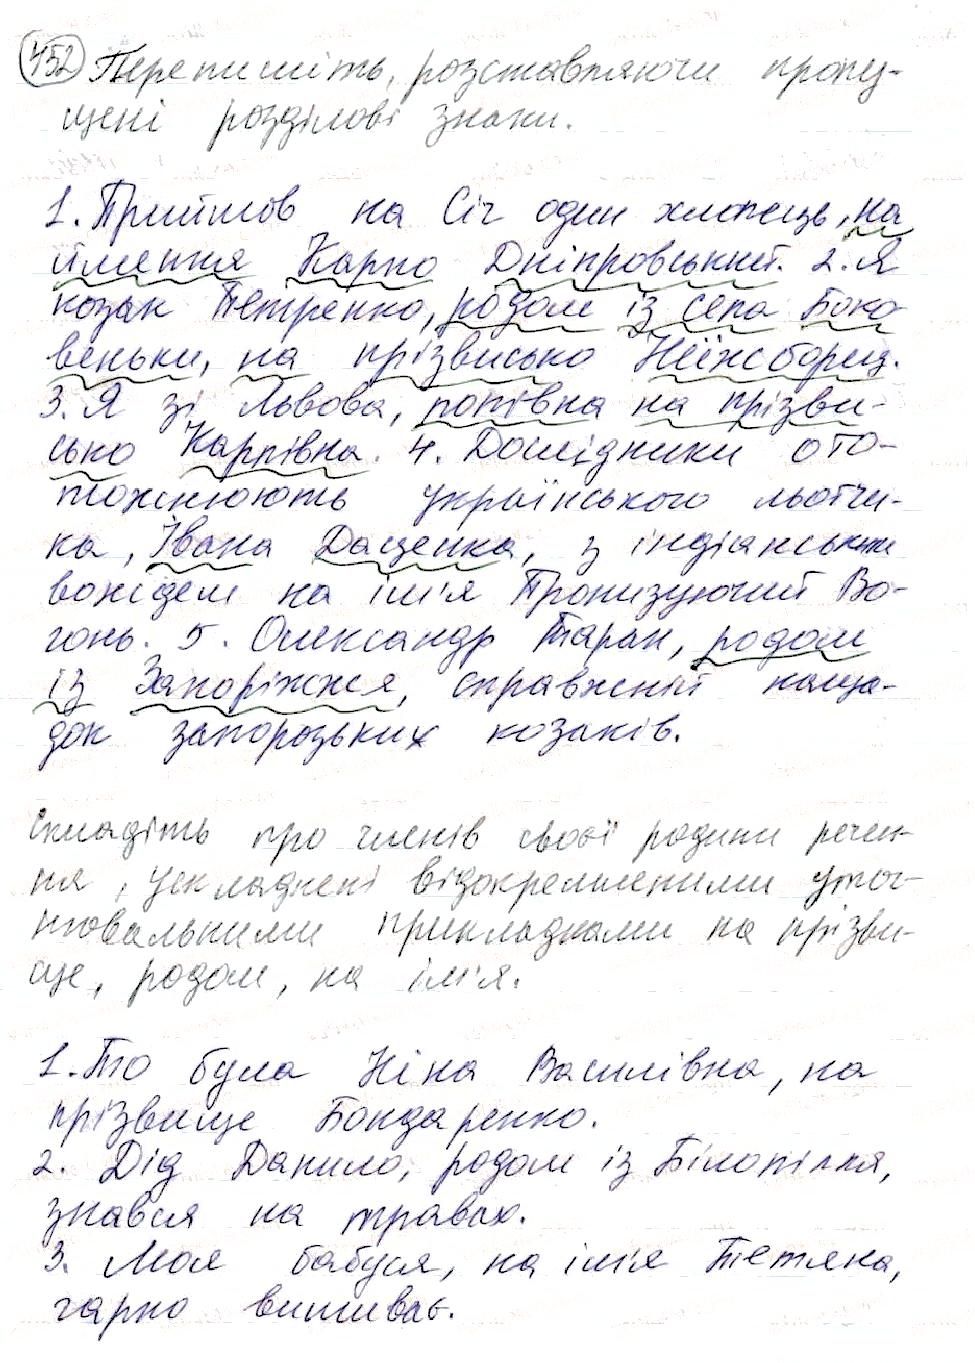 452 Перепишіть, розставляючи пропу-
щені розділові знаки.
1. Прийшов на Січ один хлопець, на
ймення Карпо Дніпровський. 2. Я
козак Петренко, родом із села Боко-
веньки, на прізвисько Неїжборщ.
3. Я зі Львова, попівна на прізви-
сько Карпівна. 4. Дослідники ото-
тожнюють українського льотчи-
ка, Івана Даценка, з індіанським
вождем на ім'я Пронизуючий Во-
гонь. 5. Олександр Таран, родом
із Запоріжжя, справжній наща-
док запорозьких козаків.
Складіть про членів своєї родини речен-
ня, ускладнені відокремленими уточ-
нювальними прикладками на прізви-
ще, родом, на ім'я.
1. То була Ніна Василівна, на
прізвище Бондаренко.
2. Дід Данило, родом із Білопілля,
знався на травах.
3. Моя бабуся, на ім'я Тетяна,
гарно вишиває.